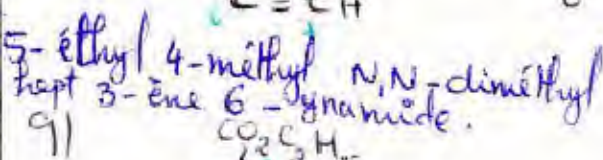 C ≡ C H
5-éthyl 4-méthyl N,N-diméthyl
hept 3-ène 6-ynamide.
9)
CO2C2H5